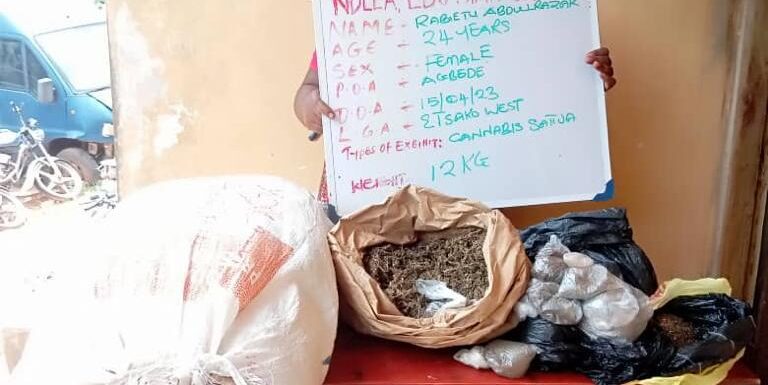 NDLEA, EDO
NAME - RABIETU ABDULRAZAK
AGE - 24 YEARS
SEX - FEMALE
P.O.A - AGBEDE
D.O.A - 15/04/23
L G A - ETSAKO WEST
TYPES OF EXHIBIT: CANNABIS SATIVA
WEIGHT 12KG